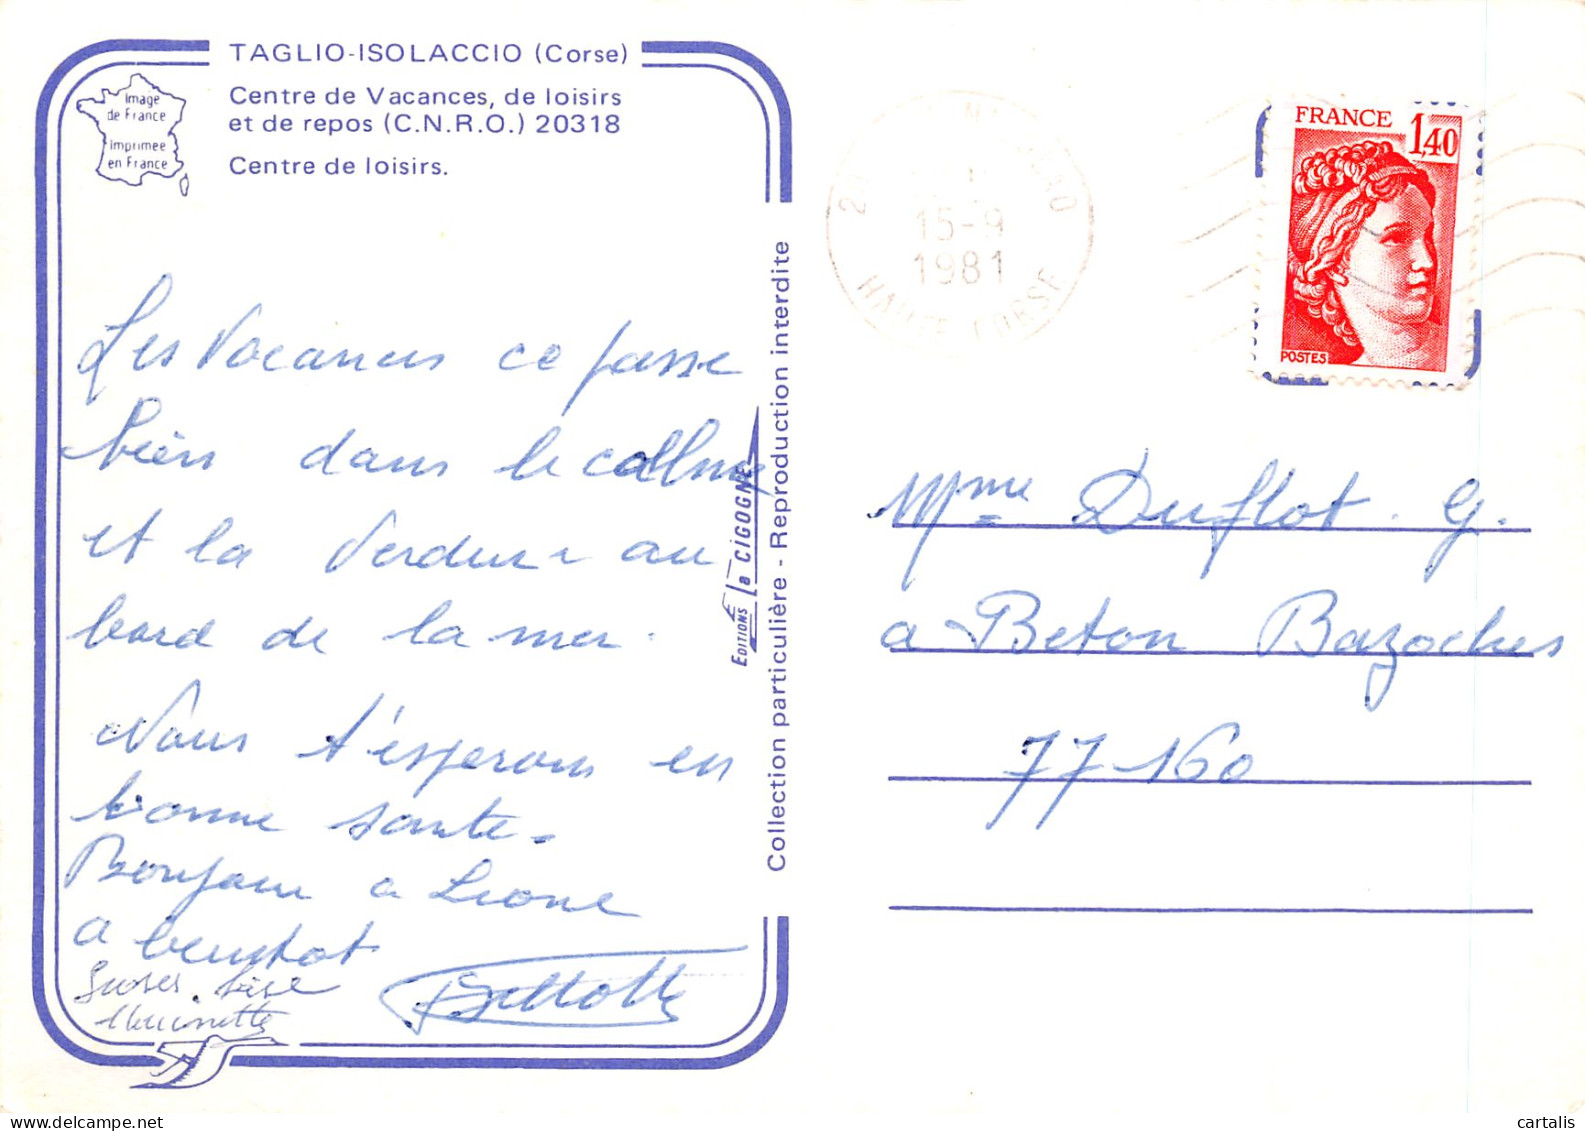 TAGLIO-ISOLACCIO (Corse)
Centre de Vacances, de loisirs
et de repos (C.N.R.O.) 20318
Centre de loisirs.
Image
de France
imprimée
en France
Les Vacances ce passe
bien dans le callme
et la Verdure au
bord de la mer.
Nous t'esperons en
bonne sante.
Bonjour a Leone
a bientot
Grosses bise
EDITIONS La CIGOGNE
Collection particulière - Reproduction interdite
15-9
1981
HAUTE CORSE
FRANCE
1,40
POSTES
Mme Duflot. G.
a Beton Bazoches
77160
cartalis